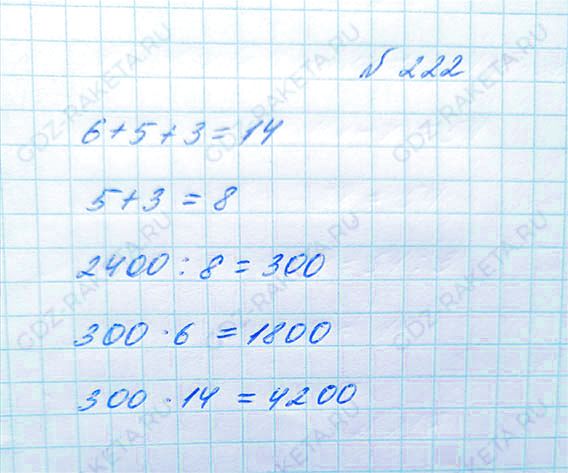 № 222
6+5+3=14
5+3=8
2400:8=300
300·6=1800
300·14=4200
GDZ-RAKETA.RU
GDZ-RAKETA.RU
GDZ-RAKETA.RU
GDZ-RAKETA.RU
GDZ-RAKETA.RU
GDZ-RAKETA.RU
GDZ-RAKETA.RU
GDZ-RAKETA.RU
GDZ-RAKETA.RU